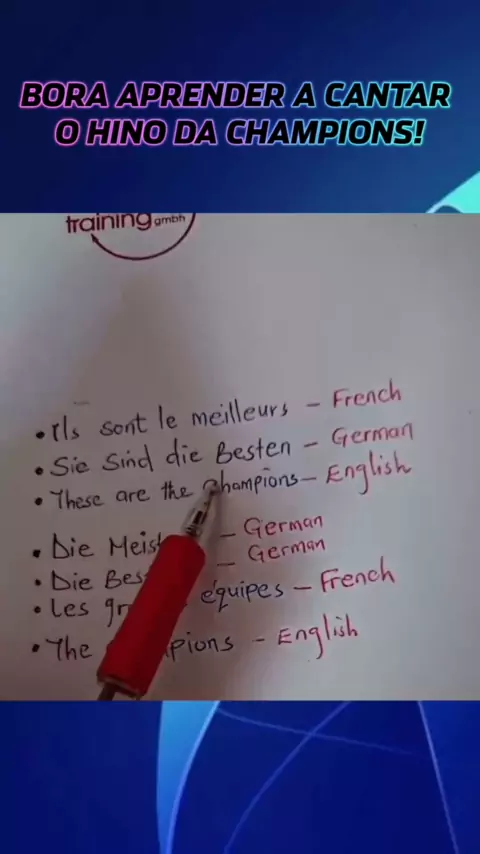 BORA APRENDER A CANTAR
O HINO DA CHAMPIONS!
training gmbh
• Ils sont le meilleurs – French
• Sie Sind die Besten – German
• These are the Champions – English
• Die – German
• Die – German
• Les équipes – French
• The – English